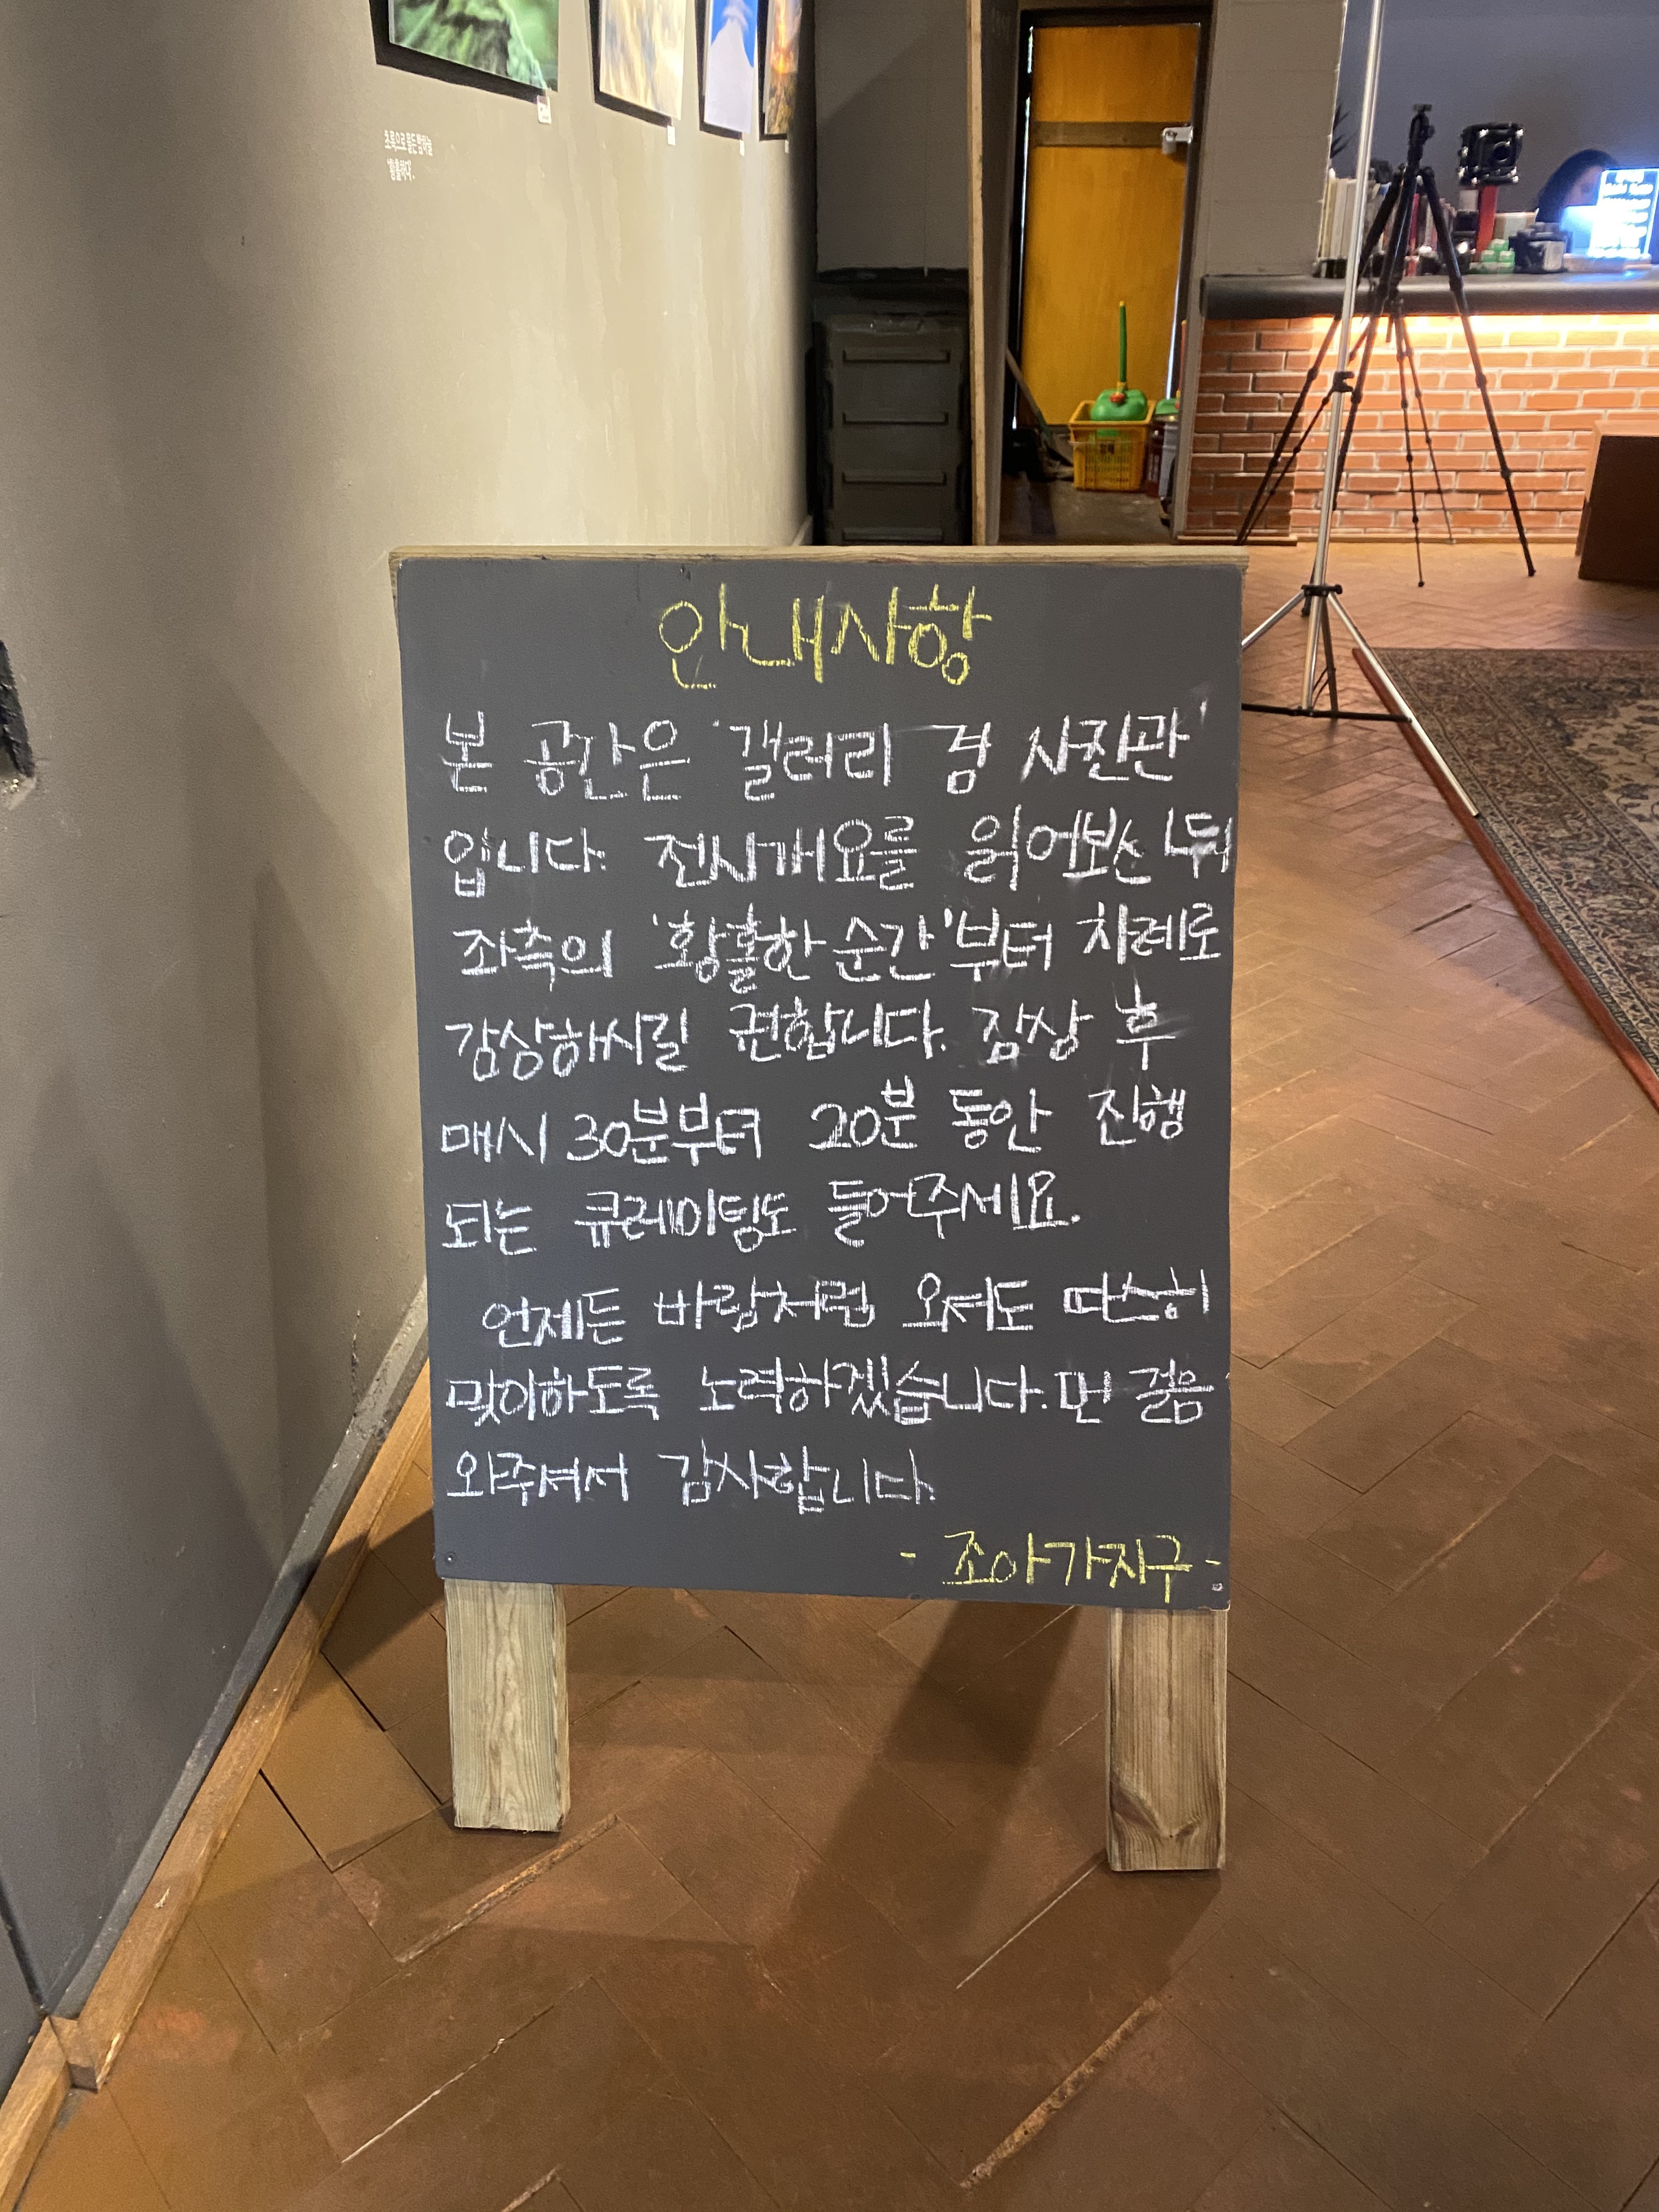 초록으로 물든 밤하늘
'황홀하다'.
안내사항
본 공간은 '갤러리 겸 사진관'
입니다. 전시개요를 읽어보신 뒤
좌측의 '황홀한 순간'부터 차례로
감상하시길 권합니다. 감상 후
매시 30분부터 20분 동안 진행
되는 큐레이팅도 들어주세요.
언제든 바람처럼 오셔도 따스히
맞이하도록 노력하겠습니다. 먼 걸음
와주셔서 감사합니다.
- 조아가지구 -